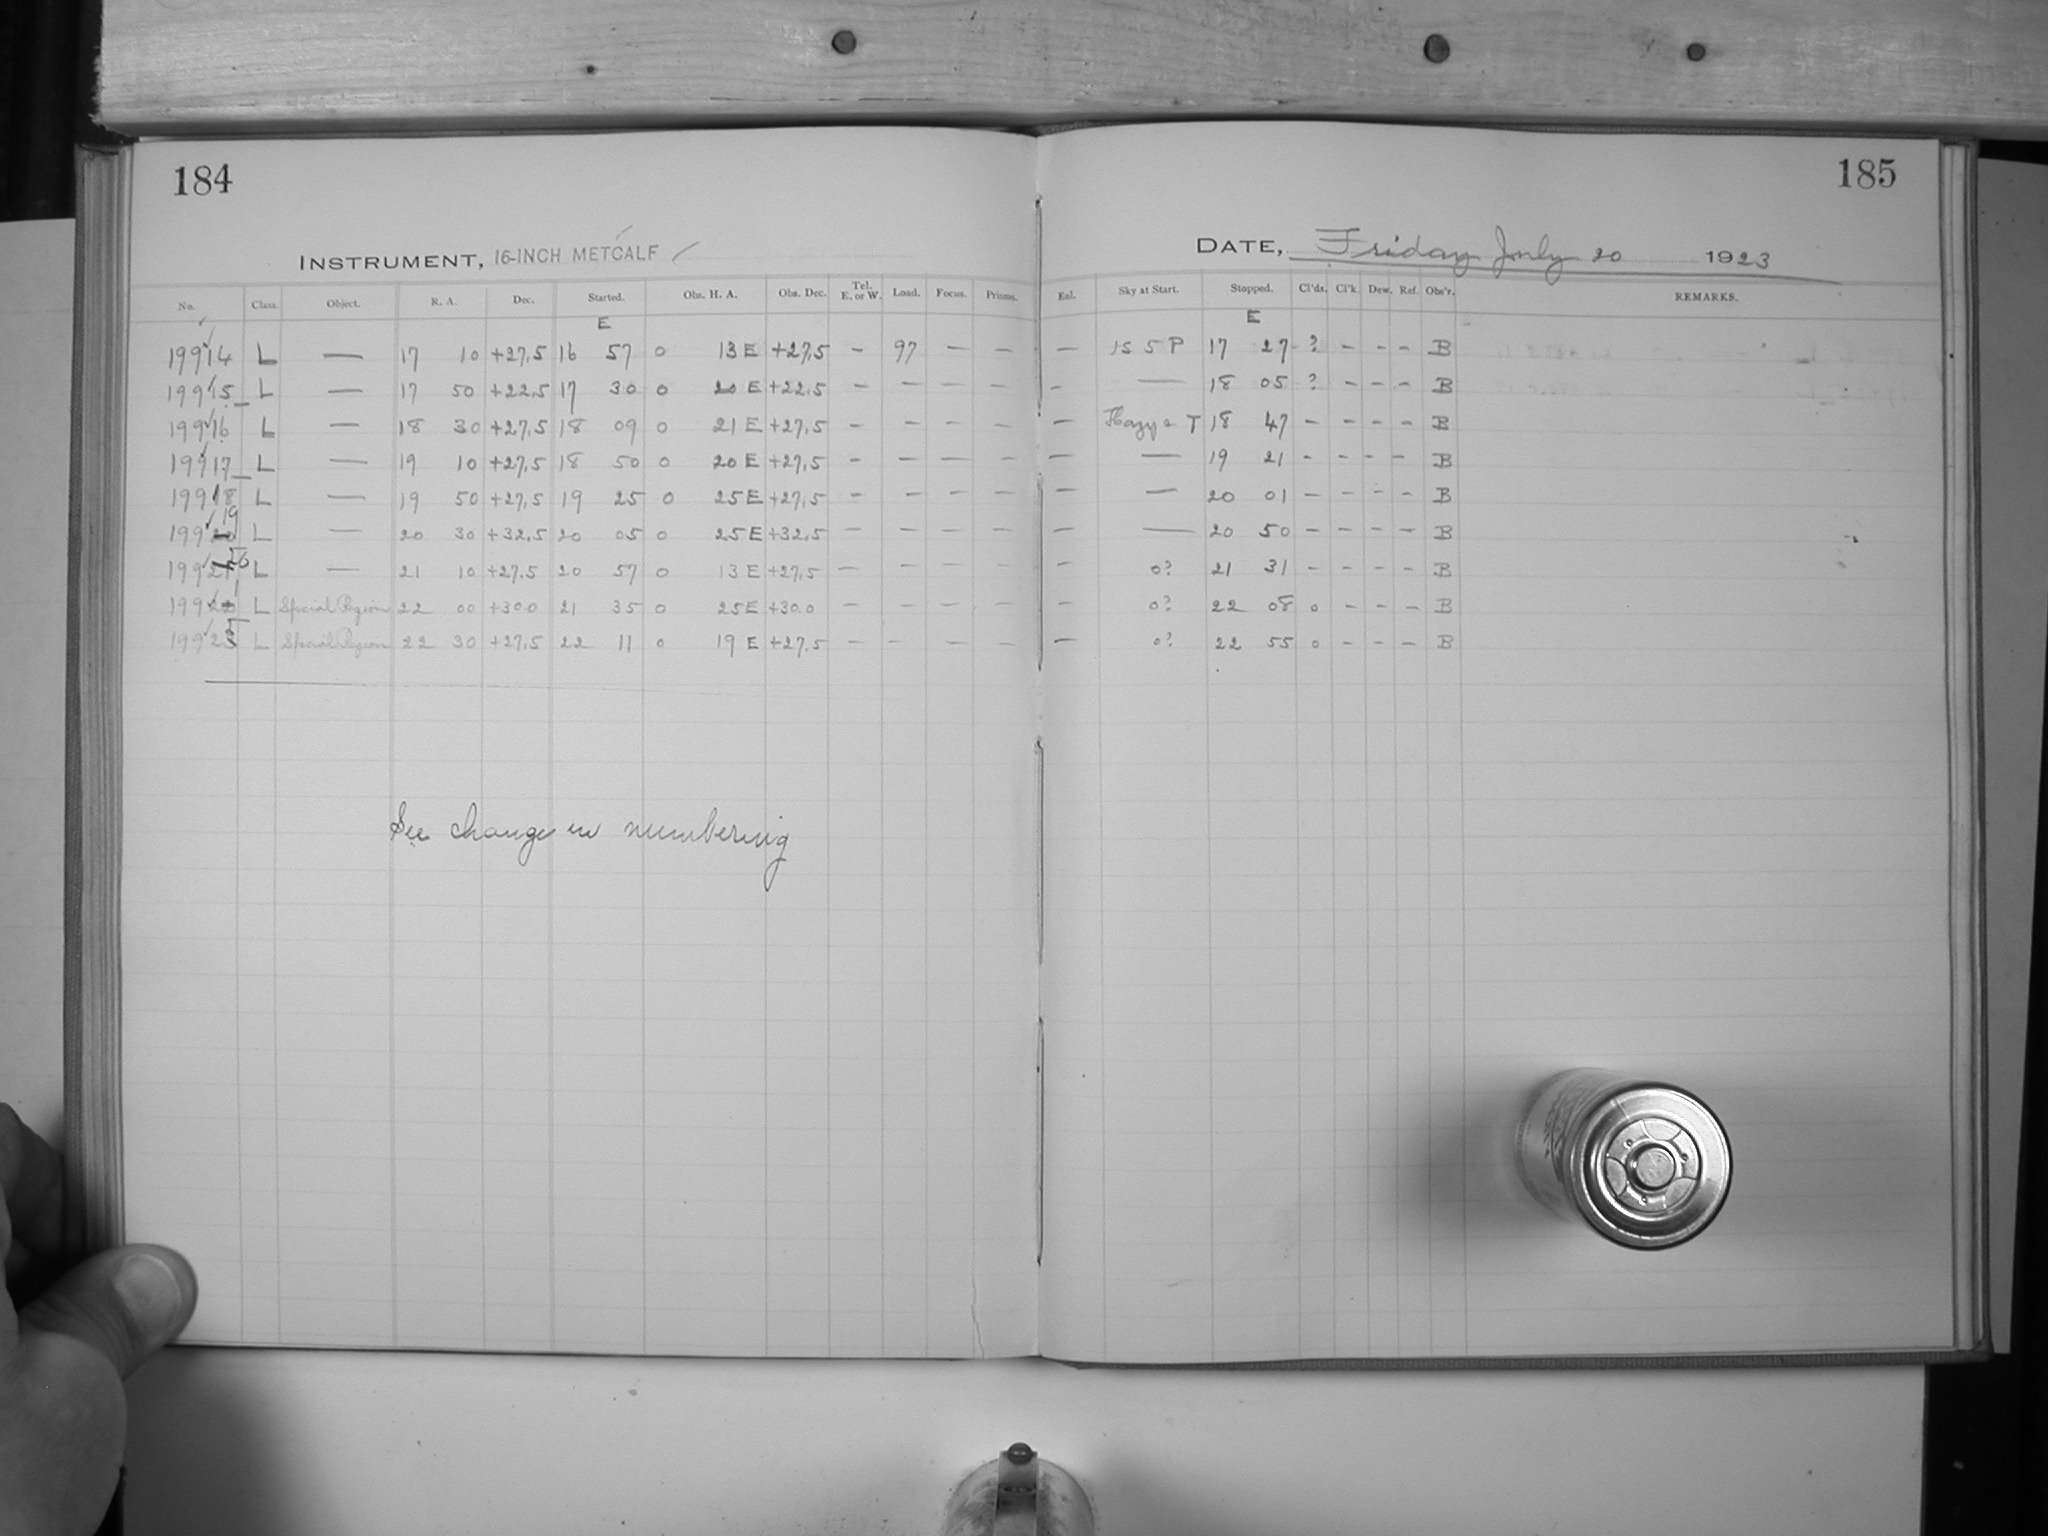 184
185
INSTRUMENT, 16-INCH METCALF
DATE, Friday July 20 1923
No. Class. Object. R. A. Dec. Started. Obs. H. A. Obs. Dec. Tel. E. or W. Load. Focus. Prisms. Enl. Sky at Start. Stopped. Cl'ds. Cl'k. Dew. Ref. Obs'r. REMARKS.
E E
19914 L — 17 10 +27.5 16 57 0 13 E +27.5 - 97 — — — 1S 5 P 17 27 ? - - - B
19915 L — 17 50 +22.5 17 30 0 20 E +22.5 - — — — - — 18 05 ? - - - B
19916 L — 18 30 +27.5 18 09 0 21 E +27.5 - - — — — Hazy T 18 47 - - - - B
19917 L — 19 10 +27.5 18 50 0 20 E +27.5 - — — — — — 19 21 - - - - B
19918 L — 19 50 +27.5 19 25 0 25 E +27.5 - — — — — — 20 01 - - - - B
19919 L — 20 30 +32.5 20 05 0 25 E +32.5 — — — — — — 20 50 - - - - B
19920 L — 21 10 +27.5 20 57 0 13 E +27.5 — — — — — 0? 21 31 - - - - B
19921 L Special Region 22 00 +30.0 21 35 0 25 E +30.0 — — — — — 0? 22 08 0 - - - B
19922 L Special Region 22 30 +27.5 22 11 0 19 E +27.5 — — — — — 0? 22 55 0 - - - B
See change in numbering